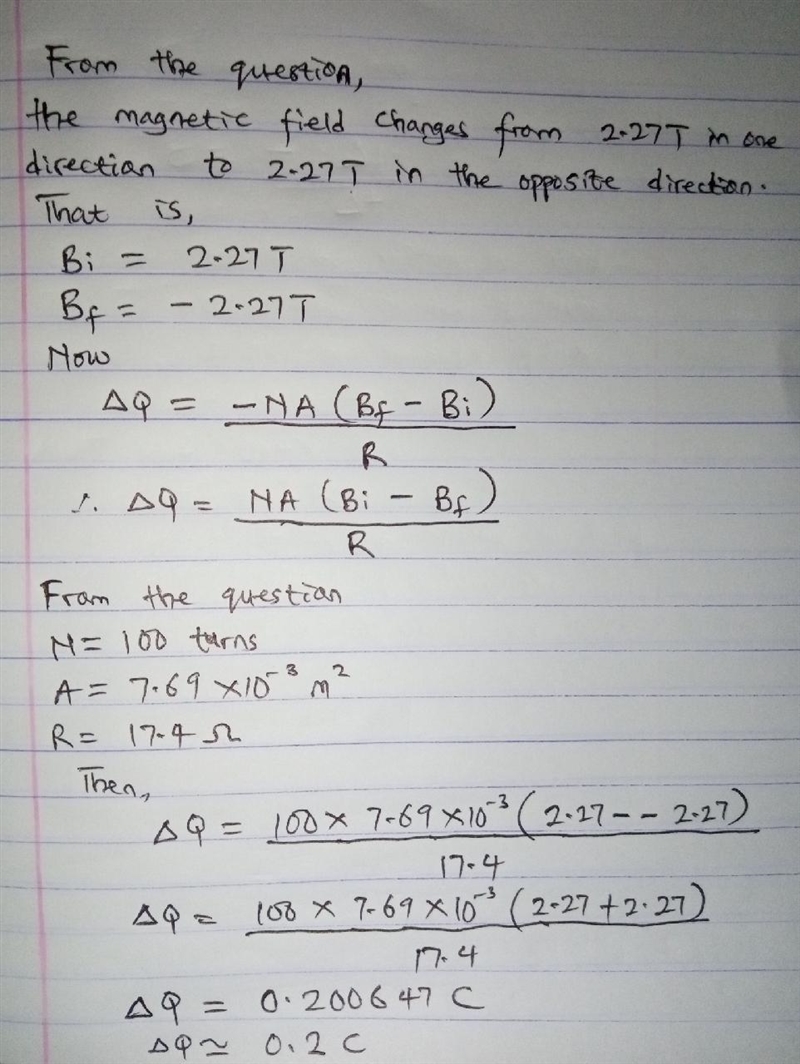 From the question,
the magnetic field changes from 2.27T in one
direction to 2.27T in the opposite direction.
That is,
Bi = 2.27T
Bf = - 2.27T
Now
ΔQ = -NA (Bf - Bi)
R
∴ ΔQ = NA (Bi - Bf)
R
From the question
N = 100 turns
A = 7.69 ×10⁻³ m²
R = 17.4 Ω
Then,
ΔQ = 100 × 7.69 ×10⁻³ (2.27 - - 2.27)
17.4
ΔQ = 100 × 7.69 ×10⁻³ (2.27 + 2.27)
17.4
ΔQ = 0.200647 C
ΔQ ≃ 0.2 C